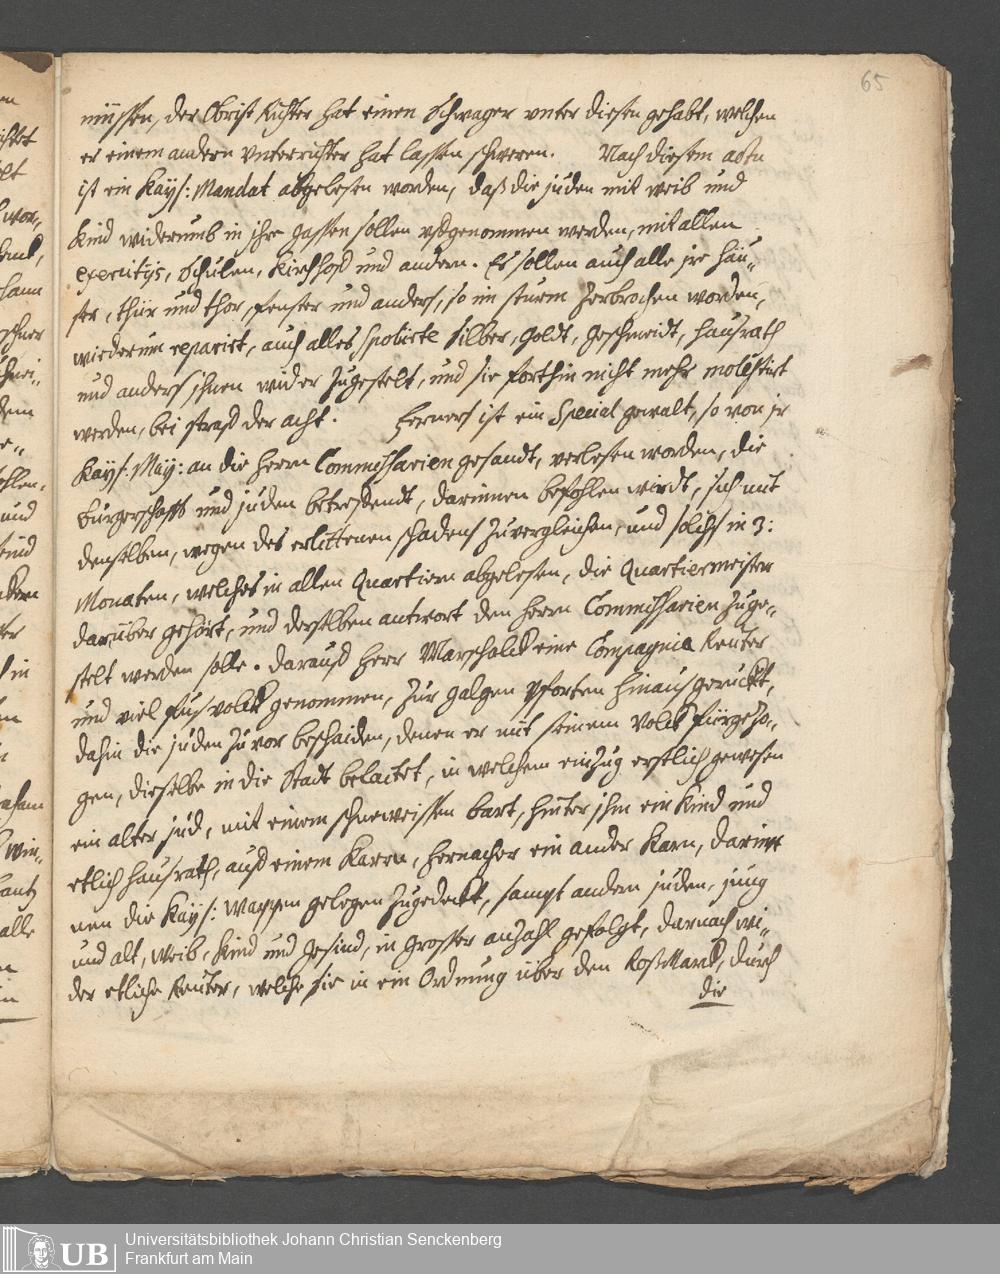 65
müssen, der Obrist Richter hat einen Schwager vnter diesen gehabt, welchen
er einem andern Vnterrichter hat lassen schweren. Nach diesem actu
ist ein Kayß: Mandat abgelesen worden, daß die juden mit weib und
Kind widerumb in jhre gassen sollen vfgenommen werden, mit allen
exercitijs, Schulen, Kirchhoff und andern. Es sollen auch alle jre Häu„
ser, thür und thor, fenster und anders, so im sturm zerbrochen worden,
wiederum reparirt, auch alles Spolirte silber, goldt, geschmeidt, haußrath
und anderß jhnen wider zugestelt, und sie forthin nicht mehr molestirt
werden, bei straff der acht. Ferners ist ein Special gewalt, so von jr
Kayß. May: an die Herrn Commissarien gesandt, verlesen worden, die
Burgerschafft und juden betreffendt, darinnen befohlen wirdt, sich mit
denselben, wegen des erlittenen schadens zuvergleichen, und solchs in 3:
Monaten, welches in allen Quartiern abgelesen, die Quartiermeister
darüber gehört, und derselben antwort den Herrn Commissarien zuge„
stelt werden solle. darauff Herr Marschalck eine Compagnia Reuter
und viel fusvolck genommen, zur galgen Pforten hinaus geruckt,
dahin die juden zuvor bescheiden, denen er mit seinem Volck fürgezo„
gen, dieselbe in die Stadt belaitet, in welchem einzug erstlich gewesen
ein alter jud, mit einem schneweissen bart, hinter jhm ein Kind und
etlich haußrath, auff einem Karrn, hernacher ein ander Karn, darin
nen die Kayß: Wappen gelegen zugedeckt, sampt andern juden, jung
und alt, weib, Kind und gesind, in grosser anzahl gefolgt, darnach wi„
der etliche Reuter, welche sie in ein Ordnung über den Roßmarck, durch
die
UB
Universitätsbibliothek Johann Christian Senckenberg
Frankfurt am Main